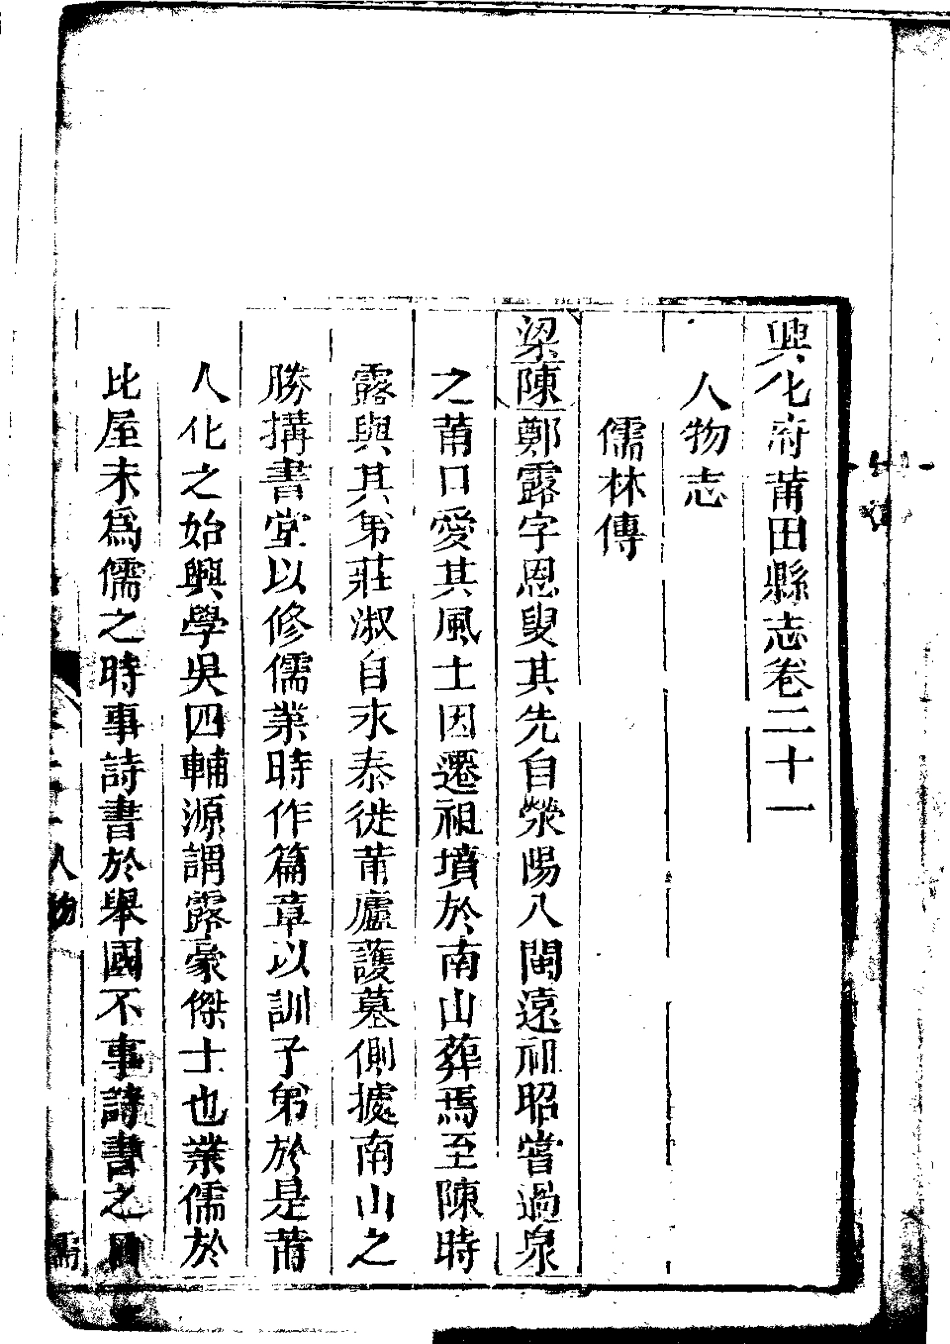 興化府莆田縣志卷二十一
人物志
儒林傳
梁陳鄭露字恩叟其先自滎陽入閩遠祖昭嘗過泉
之莆口愛其風土因遷祖墳於南山葬焉至陳時
露與其弟莊淑自永泰徙莆廬護墓側據南山之
勝搆書堂以修儒業時作篇章以訓子弟於是莆
人化之始興學吳四輔源謂露豪傑士也業儒於
比屋未爲儒之時事詩書於舉國不事詩書之日
人物
儒